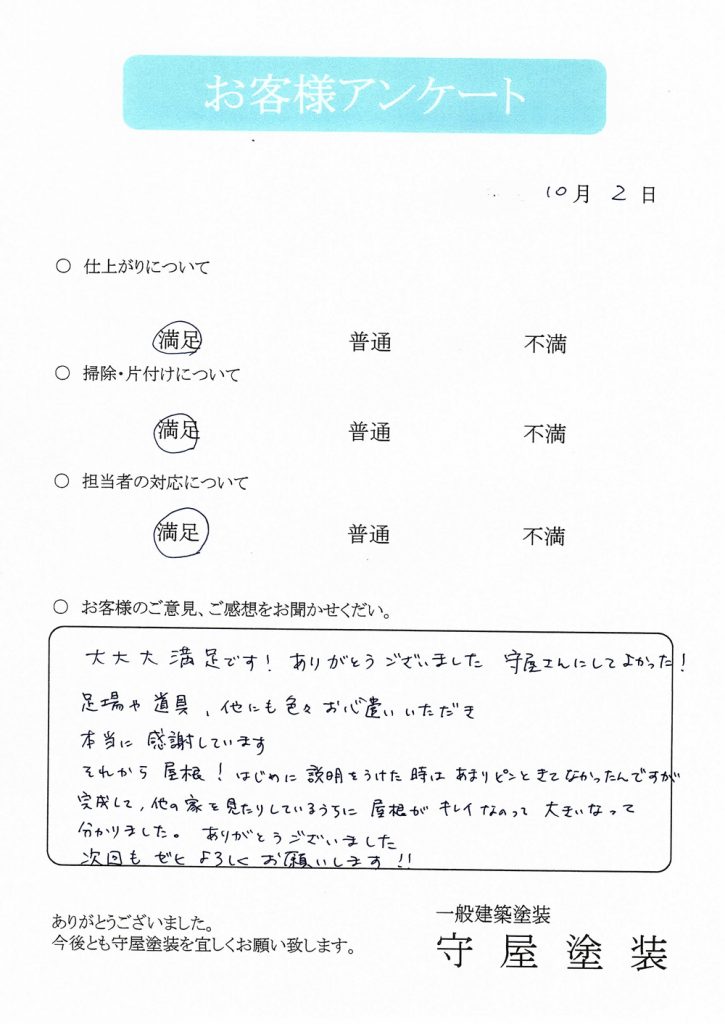 お客様アンケート
10月 2 日
○ 仕上がりについて
満足 普通 不満
○ 掃除・片付けについて
満足 普通 不満
○ 担当者の対応について
満足 普通 不満
○ お客様のご意見、ご感想をお聞かせくだい。
大大大満足です! ありがとうございました 守屋さんにしてよかった!
足場や道具、他にも色々お心遣いいただき
本当に感謝しています
それから屋根! はじめに説明をうけた時はあまりピンときてなかったんですが
完成して、他の家を見たりしているうちに屋根がキレイなのって大きいなって
分かりました。ありがとうございました
次回もゼヒよろしくお願いします!!
ありがとうございました。
今後とも守屋塗装を宜しくお願い致します。
一般建築塗装
守屋塗装